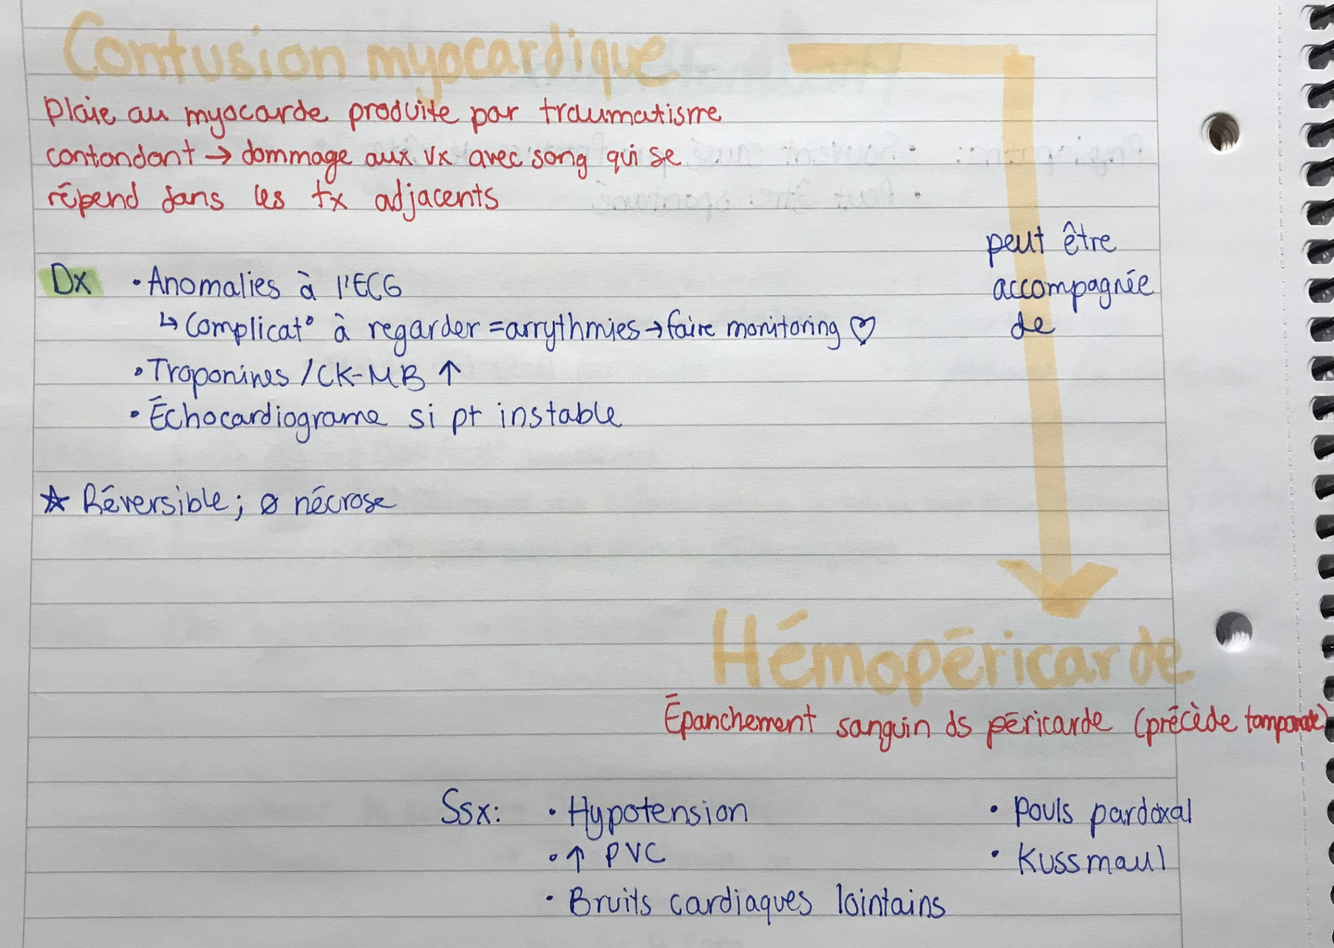 Contusion myocardique
Plaie au myocarde produite par traumatisme
contondant → dommage aux vx avec sang qui se
répend dans les tx adjacents
peut être
accompagnée
de
Dx • Anomalies à l'ECG
↳ Complicat° à regarder = arrythmies → faire monitoring ♡
• Troponines / CK-MB ↑
• Échocardiograme si pt instable
☆ Réversible; ø nécrose
Hémopéricarde
Épanchement sanguin ds péricarde (précède tamponade)
Ssx: • Hypotension • Pouls pardoxal
• ↑ PVC • Kussmaul
• Bruits cardiaques lointains